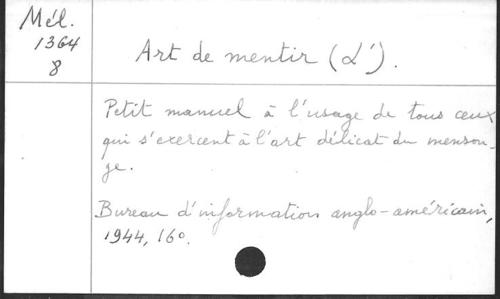 Mél.
1364
8
Art de mentir (L').
Petit manuel à l'usage de tous ceux
qui s'exercent à l'art délicat du menson-
ge.
Bureau d'information anglo-américain,
1944, 16o.